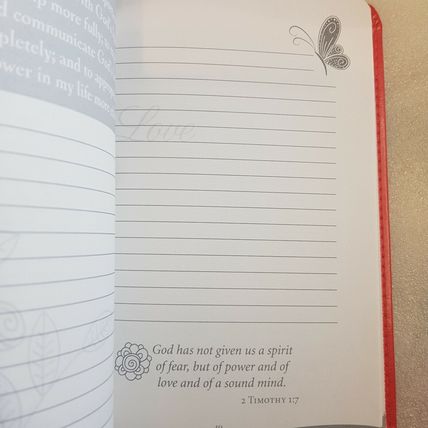 p more fully; to
d communicate God
pletely; and to app
ower in my life more
Love
God has not given us a spirit
of fear, but of power and of
love and of a sound mind.
2 TIMOTHY 1:7